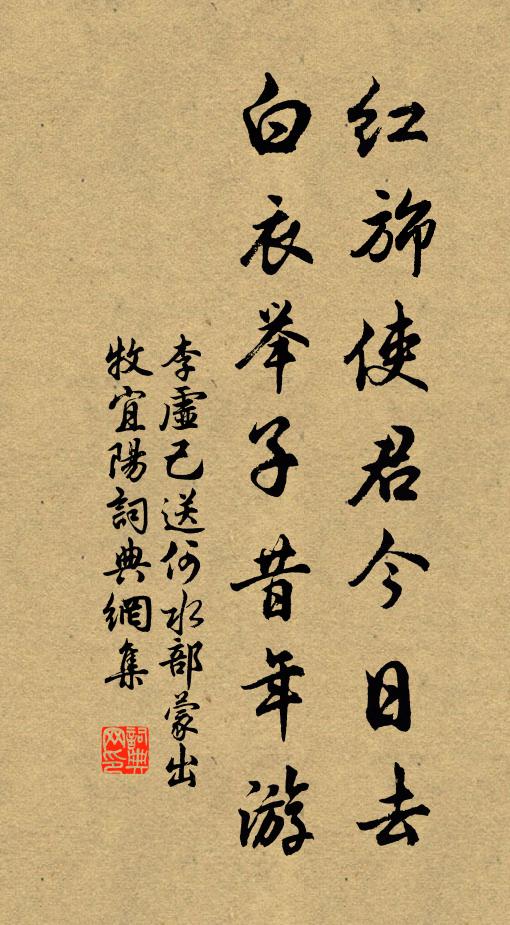 红旆使君今日去
白衣举子昔年游
李虚己送何水部蒙出
牧宜陽詞典網集
詞典网印